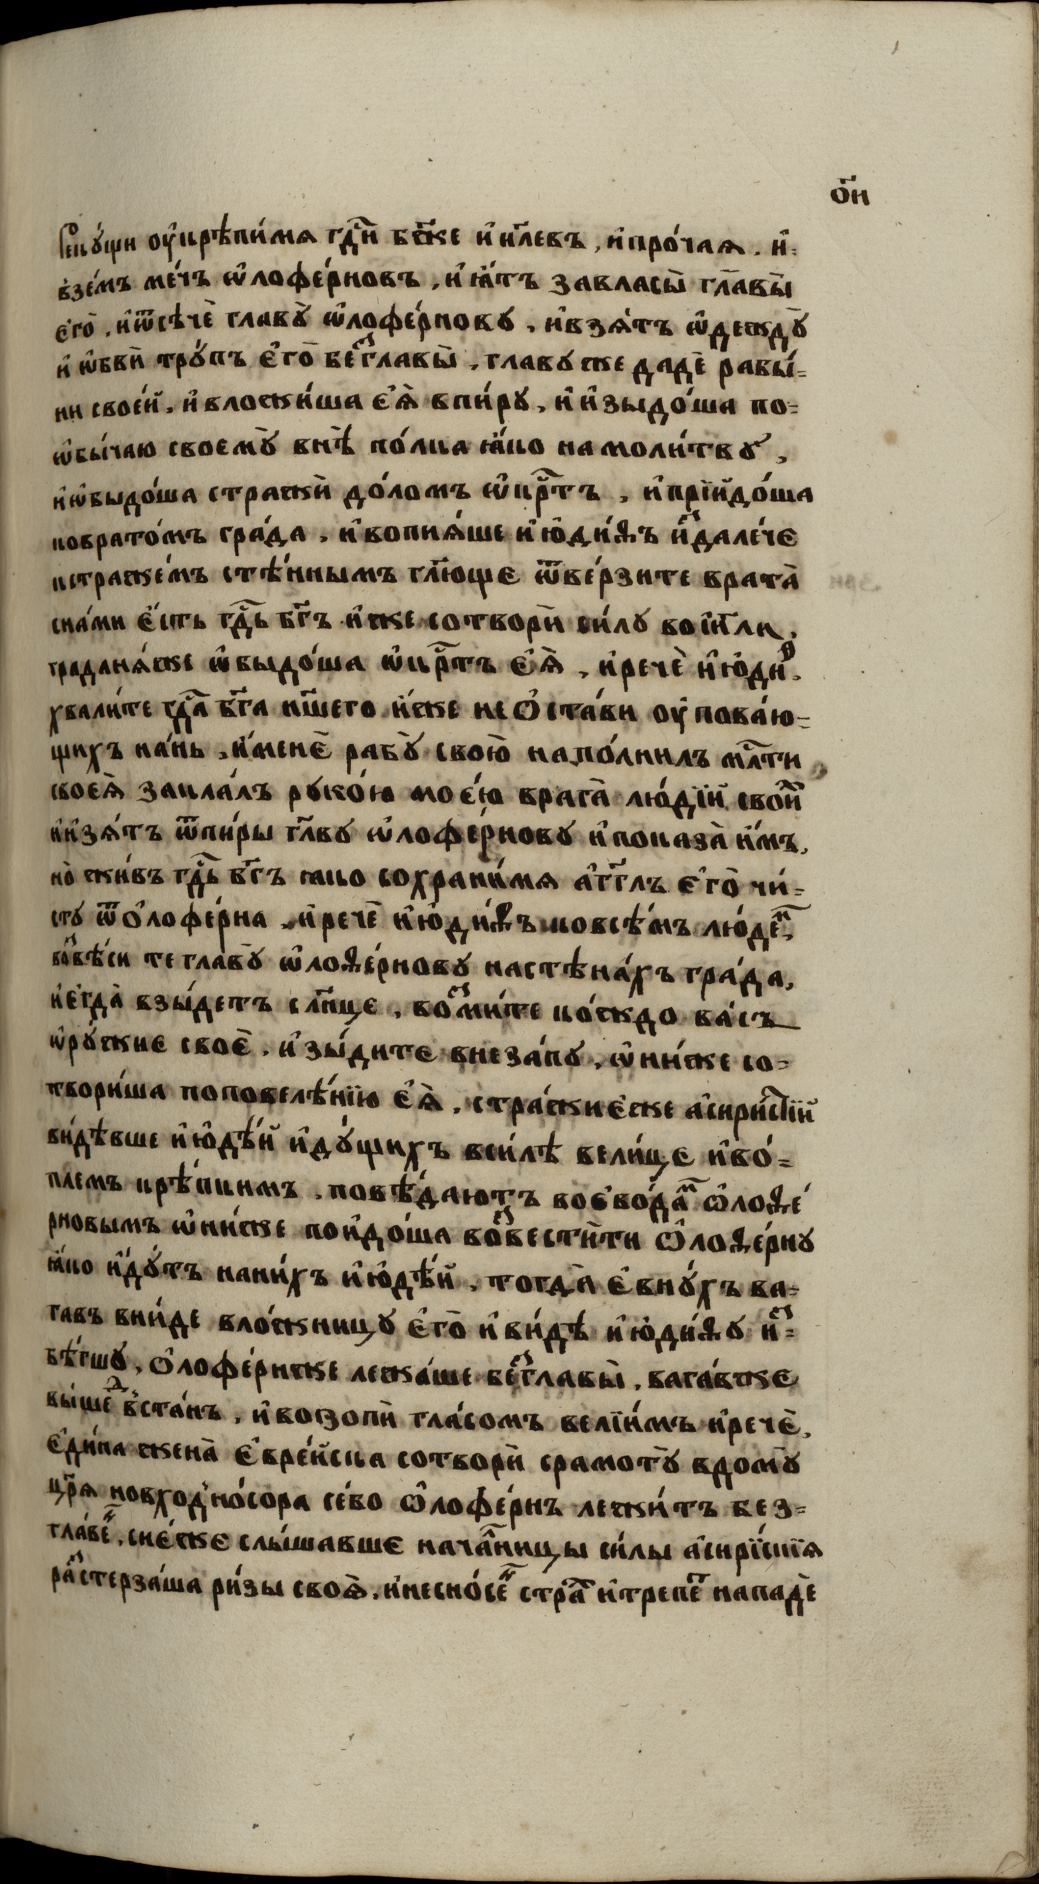 о҃и
Рекꙋ́щи ᲂу҆крѣпи́мѧ гдⷭ҇и бж҃е и҆и҃левъ, и҆про́чаѧ. и҆=
взе́мъ ме́чъ ѡ҆лофе́рновъ, и҆ ꙗ҆́тъ завласы̀ главы̀
є҆го̀. и҆ ѿсѣчѐ главꙋ̀ ѡ҆лофе́рновꙋ, и҆взѧ́тъ ѡ҆деждꙋ̀
и҆ ѡ҆бвѝ трꙋ́пъ є҆го̀ беⷥглавы̀. главꙋ же дадѐ рабы́=
ни свое́й. и҆вложи́ша є҆ѧ̀ впи́рꙋ, и҆ и҆зыдо́ша по=
ѡ҆бы́чаю своемꙋ̀ внѣ̀ по́лка ꙗ҆́ко на моли́твꙋ,
и҆ ѡ҆быдо́ша стражѝ до́ломъ ѡ҆крⷭ҇тъ, и҆ прїйдо́ша
ковратѡ́мъ гра́да, и҆ вопиѧ́ше и҆ю҆ди́ѳъ и҆ⷥдале́че
кстраже́мъ стѣ́ннымъ гл҃юще ѿве́рзите врата̀
сна́ми є҆́сть гдⷭ҇ь бг҃ъ и҆́же сотворѝ си́лꙋ вои҆и҃ли,
гражданѧ́же ѡ҆быдо́ша ѡ҆крⷭ҇тъ є҆ѧ̀, и҆речѐ и҆ю҆ди́ⷴ,
хвали́те гдⷭ҇а бг҃а нш҃его и҆́же не ѻ҆ста́ви ᲂу҆пова́ю=
щихъ на́нь, и҆́менѐ рабꙋ̀ свою̀ напо́лнилъ млⷭ҇ти
своеѧ̀ закла́лъ рꙋко́ю мое́ю врага̀ лю́дїй свои́ⷯ
и҆ и҆зѧ́тъ ѿпи́ры гл҃вꙋ ѡ҆лофе́рновꙋ и҆ показа̀ и҆̀мъ,
но̀ жи́въ гдⷭ҇ь бг҃ъ ꙗ҆́ко сохрани́мѧ а҆гг҃лъ є҆го̀ чи́=
стꙋ ѿ ѻ҆лофе́рна, и҆речѐ и҆ю҆ди́ѳъ ковсѣ́мъ лю́деⷨ,
воⷥвѣ́си те главꙋ̀ ѡ҆лоѳе́рновꙋ настѣна́хъ гра́да,
и҆є҆гда̀ взы́детъ сл҃нце, воⷥми́те ко́ждо ва́съ
ѡ҆рꙋ́жие своѐ. и҆зы́дите внеза́пꙋ, ѡ҆ни́же со=
твори́ша поповелѣ́нїю є҆ѧ̀, стра́жиє҆же а҆сири́йстїи
ви́дѣвше и҆ю҆дѣ́й и҆дꙋ́щихъ вси́лѣ вели́це и҆во́=
племъ крѣ́пкимъ, повѣ́даютъ воево́даⷨ ѡ҆лоѳе́
рновымъ ѡ҆ни́же поидо́ша воⷥвести́ти ѡ҆лоѳе́рнꙋ
ꙗ҆́ко и҆дꙋ́тъ нани́хъ и҆ю҆дѣ́й, тогда̀ є҆внꙋ́хъ ва=
гавъ вни́де вло́жницꙋ є҆го̀ и҆ ви́дѣ и҆ю҆ди́ѳꙋ и҆ⷥ=
бѣ́гшꙋ, ѻ҆лофе́рнже лежа́ше беⷥглавы̀, вага́вже
вы́шеⷣ вста́нъ, и҆ возопѝ гла́сомъ вели́имъ и҆речѐ,
є҆ди́на жена̀ є҆вре́йска сотворѝ срамотꙋ̀ вдомꙋ̀
цр҃ѧ новходно́сора се́бо ѡ҆лофе́рнъ лежи́тъ без=
гла́веⷩ, сиеже слы́шавше нача́лницы си́лы а҆сири́йскїѧ
раⷥстерза́ша ри́зы своѧ̀. и҆несно́сеⷩ стра́ⷯ и҆трепеⷮ нападѐ